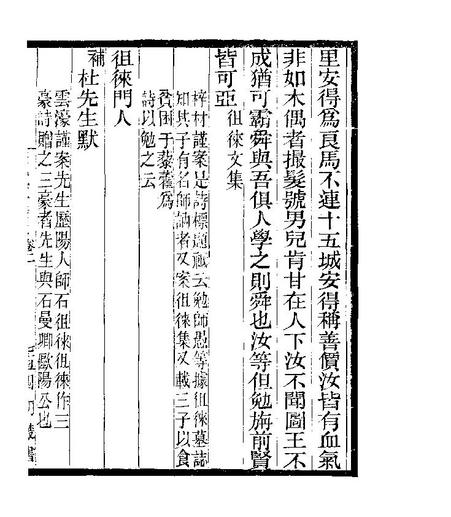 里安得為良馬不連十五城安得稱善價汝皆有血氣
非如木偶者撮髮號男兒肯甘在人下汝不聞圖王不
成猶可霸舜與吾俱人學之則舜也汝等但勉旃前賢
皆可亞徂徠文集
梓材謹案是詩標題祇云勉師愚等據徂徠墓誌
知其子有名師訥者又案徂徠集又載三子以食
貧困于藜藿為
詩以勉之云
徂徠門人
補杜先生默
雲濠謹案先生歷陽人師石徂徠徂徠作三
豪詩贈之三豪者先生與石曼卿歐陽公也
卷二